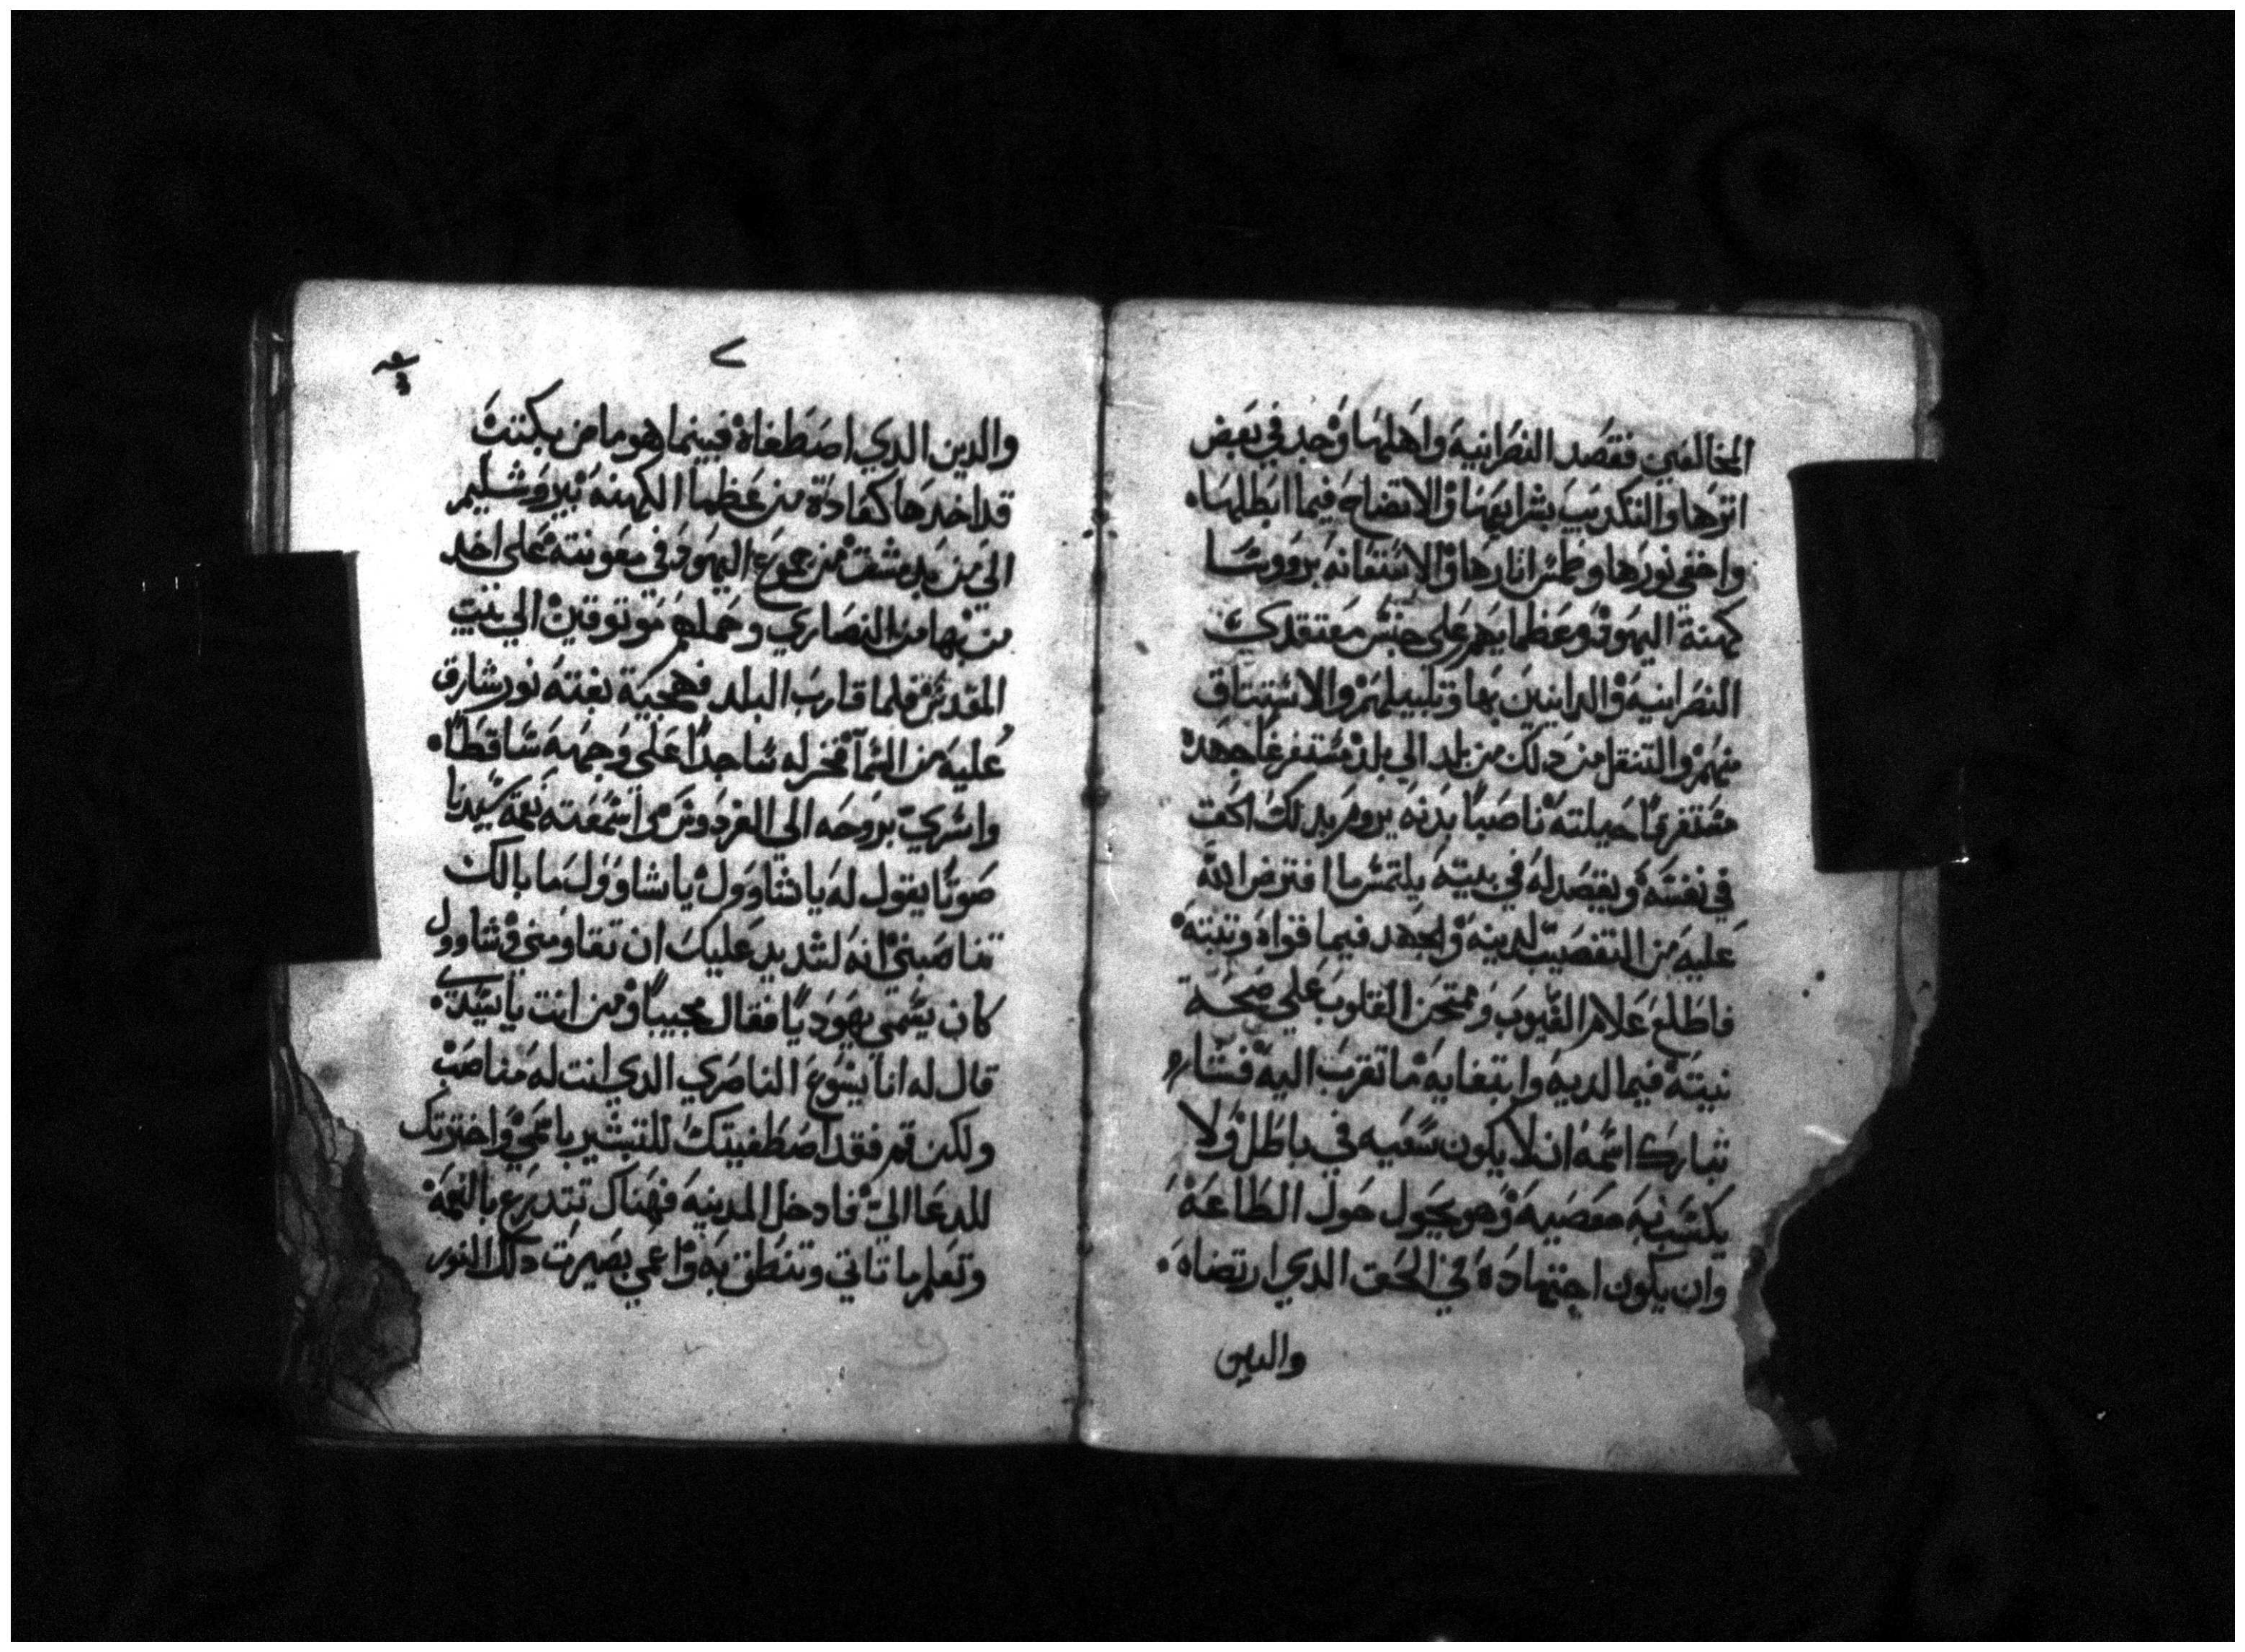 المخالفين فقصد النصرانيه واهلها وجد في بعض
اثرها والتكديب بشرايعها والاتضاح فيما ابطلها
واخفى نورها وطمس اثارها والاستعانه بروسا
كهنة اليهود وعظمايهم على حبس معتقدي
النصرانيه والداينين بها وتلبيلهم والاستتاق
منهم والتنقل من دلك من بلد الى بلد مستفرغا جهده
مستفرغا حيلته ناصبا بدنه يروم بدلك
في نفسه ويقصد له في بيته يلتمس ما افترض الله
عليه من التعصب لدينه والجهد فيما قواه وتبته
فاطلع علام الغيوب وممتحن القلوب على صحة
نيته فيما لديه وابتغايه ما تقرب اليه فشا
تبارك اسمه ان لا يكون سعيه في باطل ولا
يكسب به معصيه وهو يجول حول الطاعة
وان يكون اجتهاده في الحق الدي ارتضاه
والدين
والدين الدي اصطفاه فبينما هو ماض بكتب
قد اخدها كفادة من عظما الكهنه بيروشليم
الى من بدمشق من جموع اليهود في معونته على اخد
من بها من النصاري وحملهم موتوقين الي بيت
المقدس فلما قارب البلد بغته نور شارق
عليه من السما فخر له ساجدا على وجهه ساقطا
واسري بروحه الى الفردوس واسمعته نعمة سيدنا
صوتا يقول له يا شاوول يا شاوول ما بالك
تناصبني انه لشديد عليك ان تقاومني وشاوول
كان يسمى يهوديا فقال مجيبا ومن انت يا سيدي
قال له انا يسوع الناصري الدي انت له مناصب
ولكن قم فقد اصطفيتك للتبشير باسمي واخترتك
للدعا الي فادخل المدينه فهناك تتدرع بالنعمة
وتعلم ما تاتي وتنطق به واعمي بصيرت دلك النور